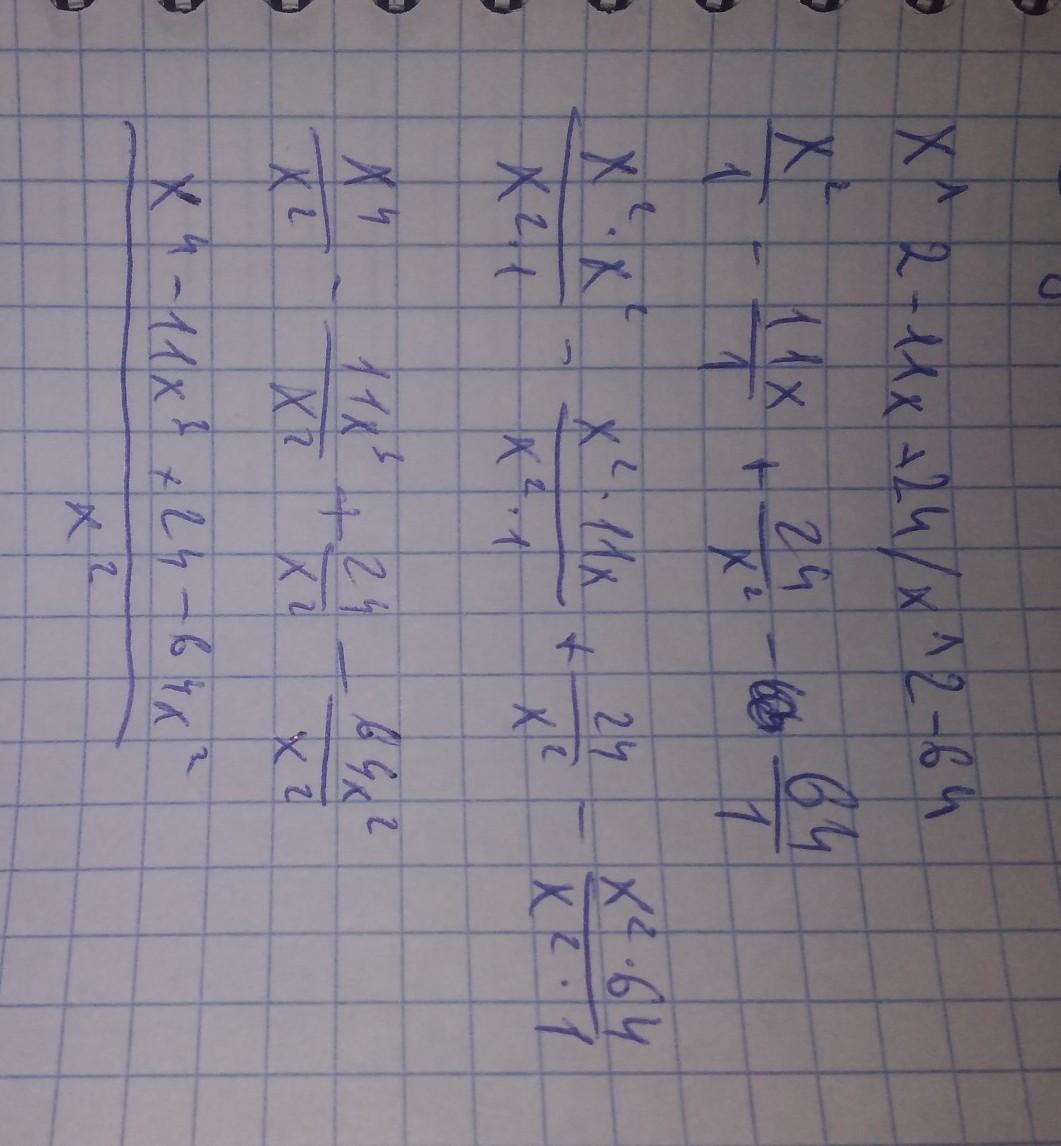 x^2-11x+24/x^2-64
x²/1 - 11x/1 + 24/x² - 64/1
x²·x²/x²·1 - x²·11x/x²·1 + 24/x² - x²·64/x²·1
x⁴/x² - 11x³/x² + 24/x² - 64x²/x²
x⁴-11x³+24-64x²/x²